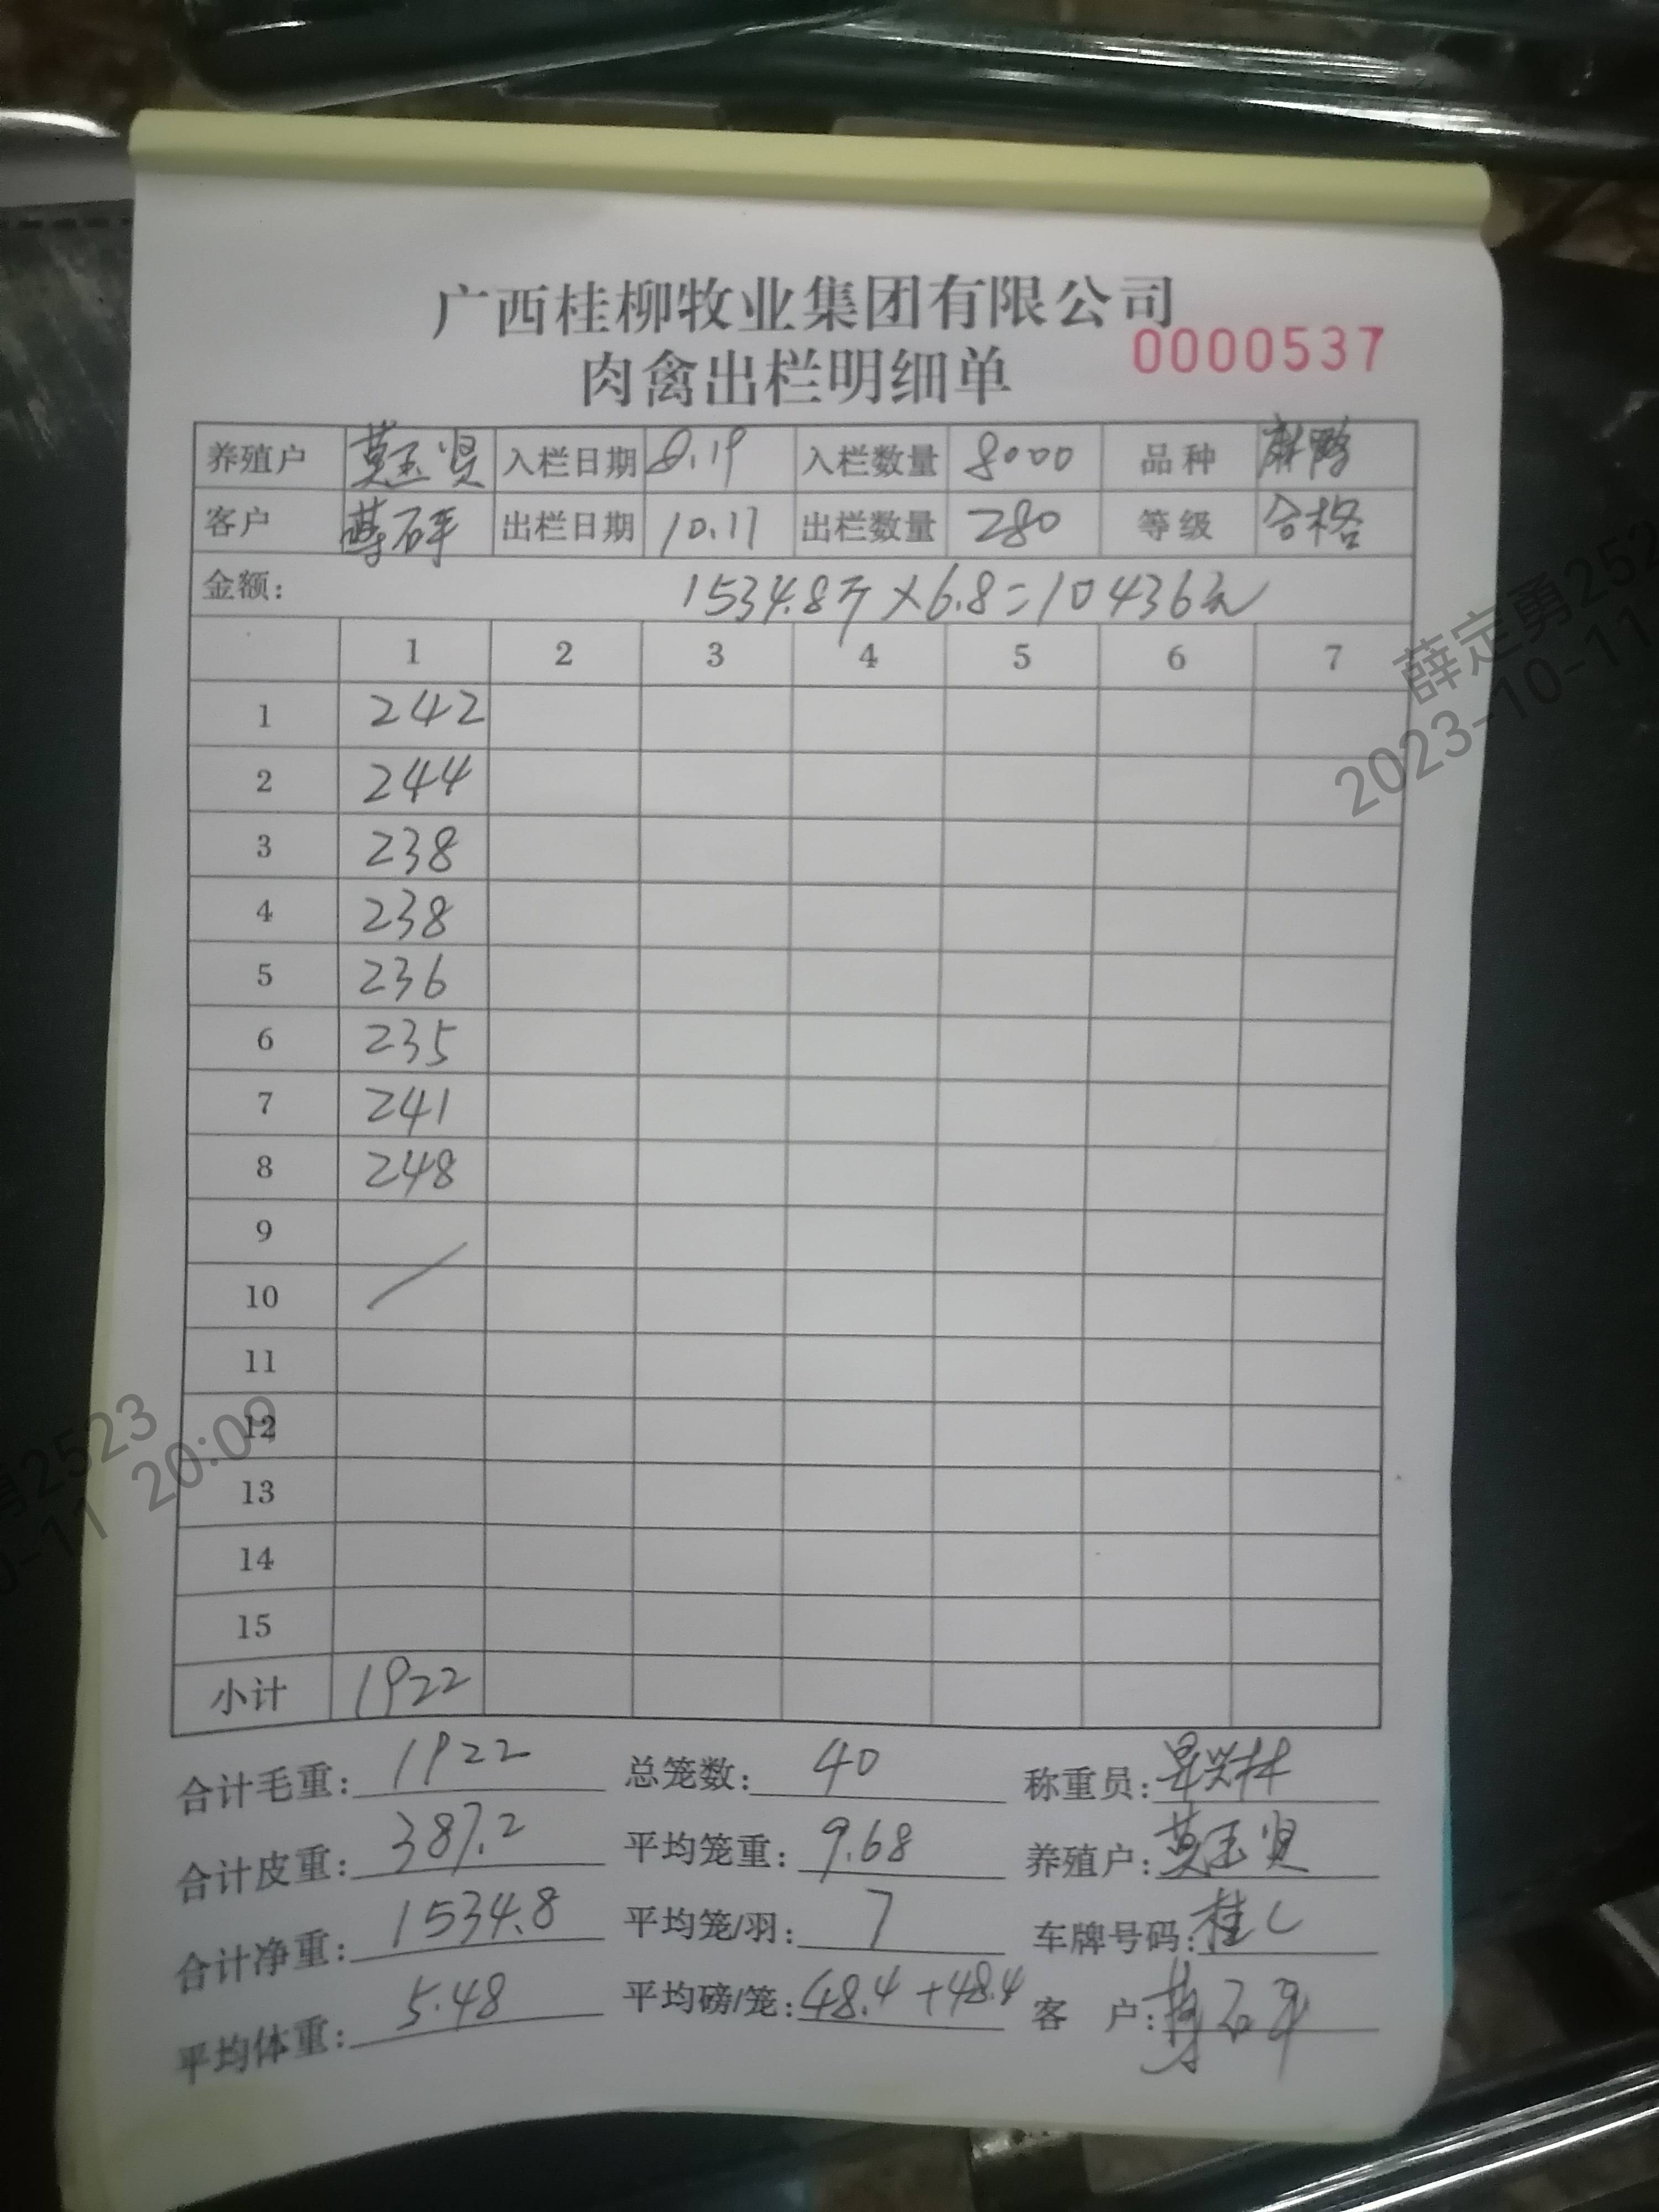 广西桂柳牧业集团有限公司
肉禽出栏明细单 0000537
养殖户 莫玉贤 入栏日期 8.19 入栏数量 8000 品种 麻鸭
客户 出栏日期 10.11 出栏数量 280 等级 合格
金额: 1534.8斤×6.8=10436元
1 2 3 4 5 6 7
1 242
2 244
3 238
4 238
5 236
6 235
7 241
8 248
9
10
11
12
13
14
15
小计 1922
合计毛重: 1922 总笼数: 40 称重员:
合计皮重: 387.2 平均笼重: 9.68 养殖户: 莫玉贤
合计净重: 1534.8 平均笼/羽: 7 车牌号码: 桂C
平均体重: 5.48 平均磅/笼: 48.4+48.4 客 户:
薛定勇252
2023-10-11
勇2523
0-11 20:09